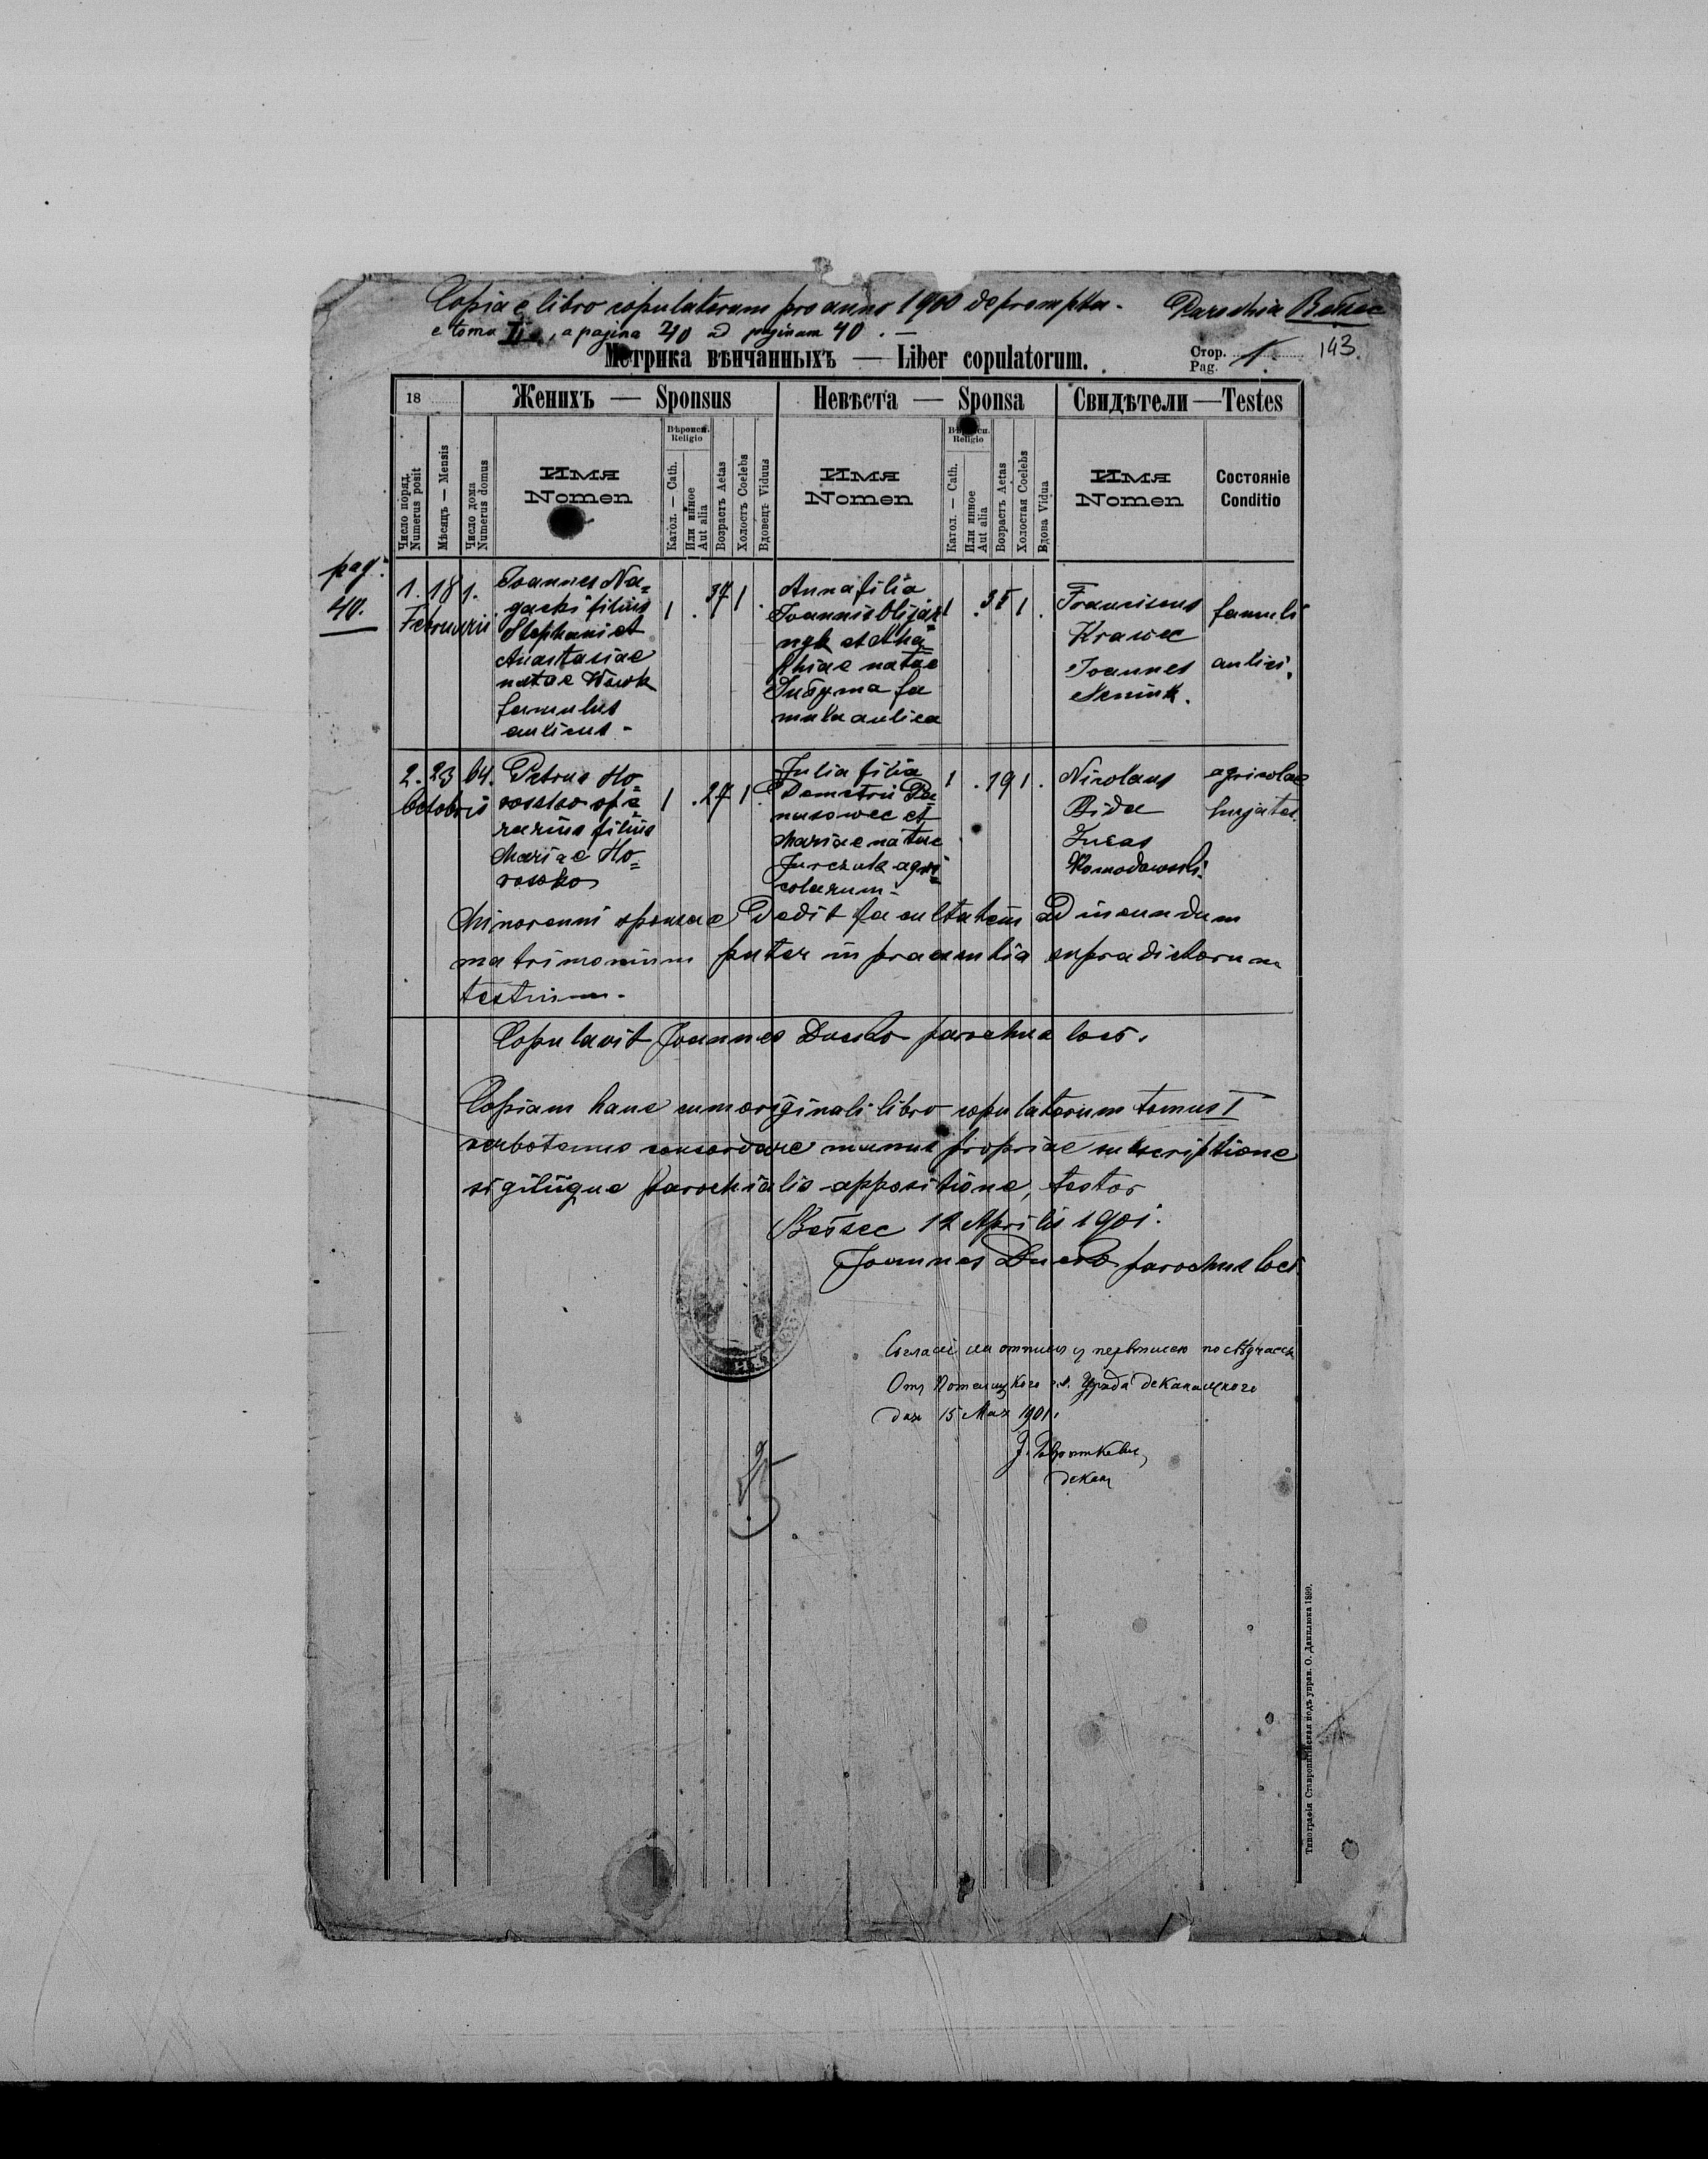 Copia e libro copulatorum pro anno 1900 deprompta. Parochia Bełzec
e tomo II, a pagina 40 ad paginam 40. —
Метрика вѣнчанныхъ — Liber copulatorum.
Стор. Pag. 1. 143.
18 Женихъ — Sponsus Невѣста — Sponsa Свидѣтели — Testes
Число поряд. Numerus posit
Мѣсяцъ — Mensis
Число дома Numerus domus
Имя Nomen
Вѣроисп. Religio
Катол. — Cath.
Или инное Aut alia
Возрастъ Aetas
Холостъ Coelebs
Вдовецъ Viduus
Имя Nomen
Вѣроисп. Religio
Катол. — Cath.
Или инное Aut alia
Возрастъ Aetas
Холостая Coelebs
Вдова Vidua
Имя Nomen
Состояніе Conditio
pag.
40.
1. 18 1.
Februarii
Joannes Na=
gacki filius
Stephani et
Anastasiae
natae
famulus
aulicus -
1 . 37 1 .
Anna filia
Joannis
et
natae
fa
mula aulica
1 . 35 1 .
Franciscus
Krawec
Joannes
famuli
aulici.
2. 23 64.
Octobris
Petrus Ho=
roszko ope=
rarius filius
Mariae Ho=
roszko
1 . 27 1 .
Julia filia
Demetrii Pa=
nasowec et
Mariae natae
Jurczuk agri=
colarum -
1 . 19 1 .
Nicolaus
Bida
Lucas
agricolae
hujates.
Minorenni sponsae dedit facultatem ad ineundum
matrimonium pater in praesentia supradictorum
testium.
Copulavit Joannes parochus loci.
Copiam hanc cum originali libro copulatorum tomus I
verbotenus concordare manus propriae subscriptione
sigilique parochialis appositione, testor
Bełzec 12 Aprilis 1901.
Joannes parochus loci.
От Потелицкого деканацкого
дня 15 Мая 1901.
декан
Типографія Ставропигійская подъ управ. О. Данилюка 1899.